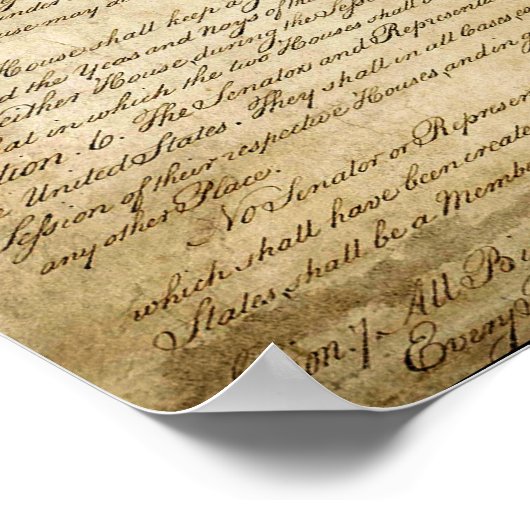 under
use may a
House shall keep a
d the Yeas and Nays of the
either House, during the Sess
at in which the two Houses shall
tion. 6. The Senators and Represent
United States. They shall in all Cases
Session of their respective Houses, and in g
any other Place.
No Senator or Represen
which shall have been create
States, shall be a Membe
ion. 7. All Bi
Every